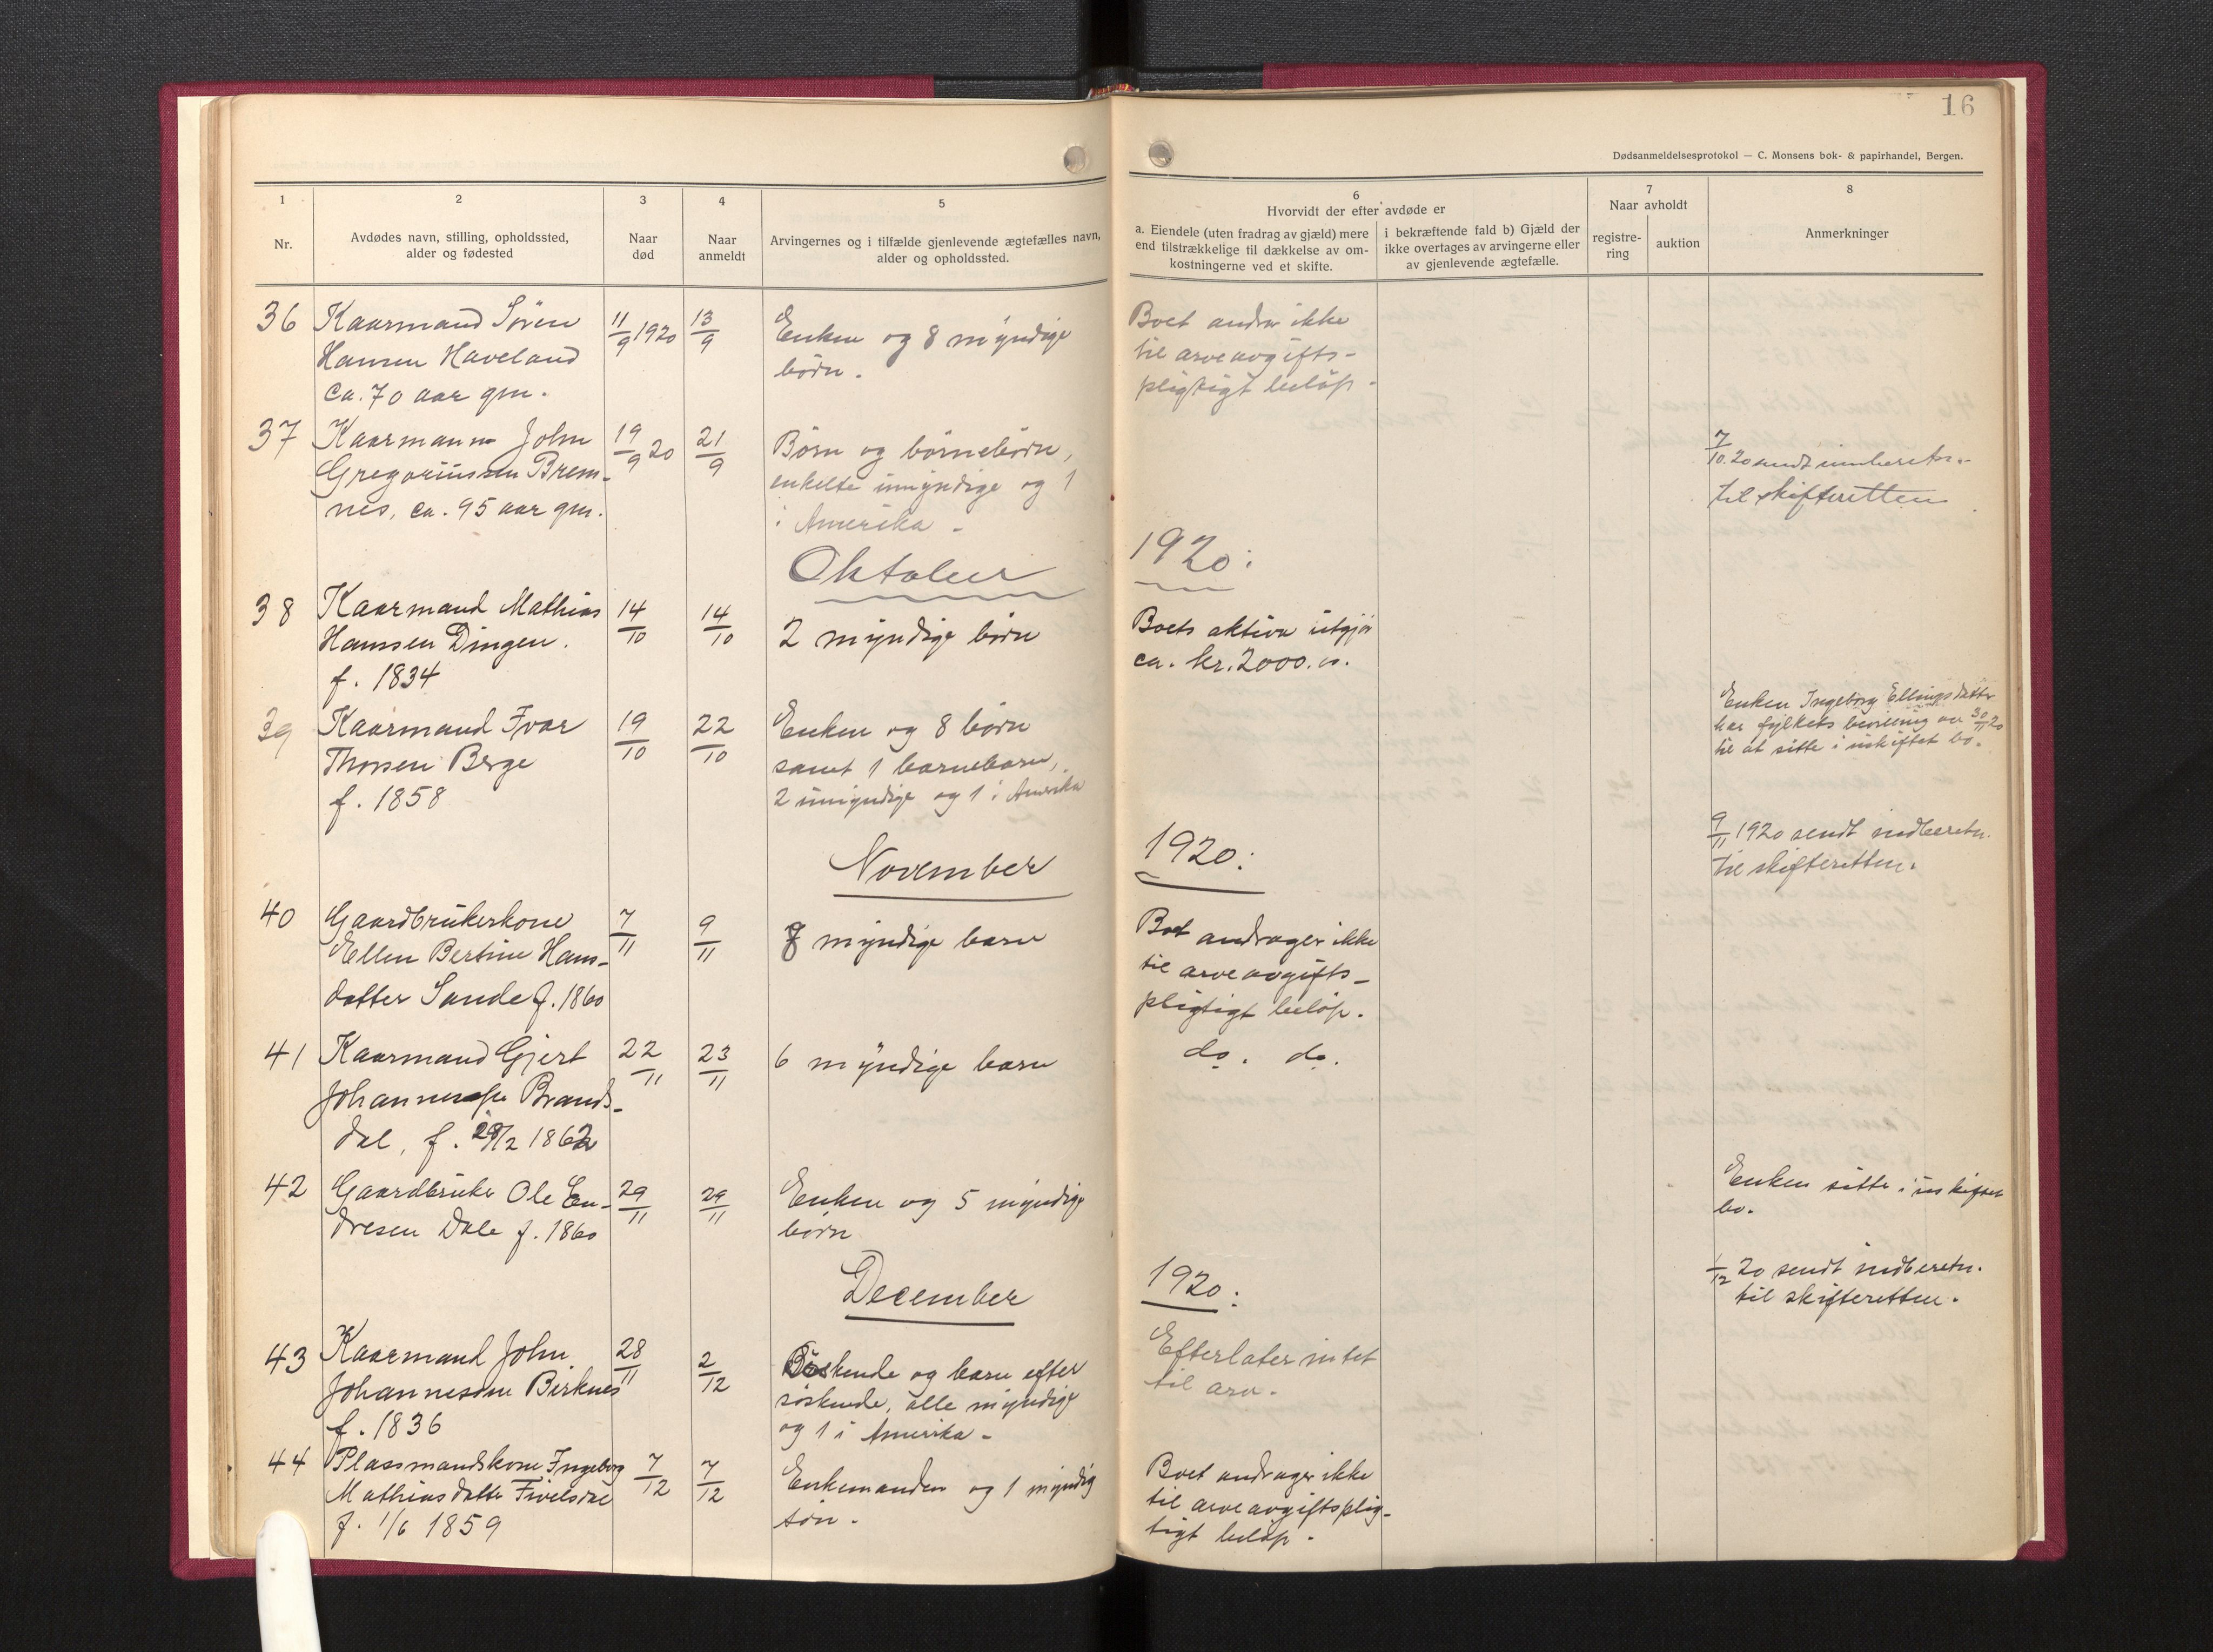 16
Dødsanmeldelsesprotokol — C. Monsens bok- & papirhandel, Bergen.
1
2
3
4
5
6
7
8
Nr.
Avdødes navn, stilling, opholdssted,
alder og fødested
Naar
død
Naar
anmeldt
Arvingernes og i tilfælde gjenlevende ægtefælles navn,
alder og opholdssted.
Hvorvidt der efter avdøde er
a. Eiendele (uten fradrag av gjæld) mere
end tilstrækkelige til dækkelse av om-
kostningerne ved et skifte.
i bekræftende fald b) Gjæld der
ikke overtages av arvingerne eller
av gjenlevende ægtefælle.
Naar avholdt
registre-
ring
auktion
Anmerkninger
36
Kaarmand Søren
Hansen Haveland
ca. 70 aar gm.
11/9 1920
13/9
Enken og 8 myndige
børn.
Boet andrar ikke
til arveavgifts-
pligtigt beløp.
37
Kaarmann John
Gregoriussen Brem-
nes, ca. 95 aar gm.
19/9 20
21/9
Børn og børnebørn,
enkelte umyndige og 1
i Amerika -
7/10.20 sendt innberetn.
til skifteretten
Oktober 1920:
38
Kaarmand Mathias
Hansen Dingen.
f. 1834
14/10
14/10
2 myndige børn
Boets aktiva utgjør
ca. kr. 2000.00.
39
Kaarmand Ivar
Thorsen Berge
f. 1858
19/10
22/10
Enken og 8 børn
samt 1 barnebarn,
2 umyndige og 1 i Amerika
Enken Ingeborg Ellingsdatter
har fylkets bevilling av 30/11 20
til at sitte i uskiftet bo.
9/11 1920 sendt indberetn.
til skifteretten.
November 1920:
40
Gaardbrukerkone
Ellen Bertine Hans-
datter Sande f. 1860
7/11
9/11
8 myndige barn
Boet andrager ikke
til arveavgifts-
pligtigt beløp.
41
Kaarmand Gjert
Johannessen Brands-
dal, f. 29/2 1862
22/11
23/11
6 myndige barn
do. do.
42
Gaardbruker Ole En-
dresen Dale f. 1860
29/11
29/11
Enken og 5 myndige
børn
Enken sitte i uskiftet
bo.
1/12 20 sendt indberetn.
til skifteretten.
December 1920:
43
Kaarmand John
Johannesen Birknes
f. 1836
28/11
2/12
Søskende og barn efter
søskende, alle myndige
og 1 i Amerika -
Efterlater intet
til arv.
44
Plassmandskone Ingeborg
Mathiasdatter Fivelsdal
f. 1/6 1859
7/12
7/12
Enkemanden og 1 myndig
søn.
Boet andrager ikke
til arveavgiftsplig-
tigt beløp.